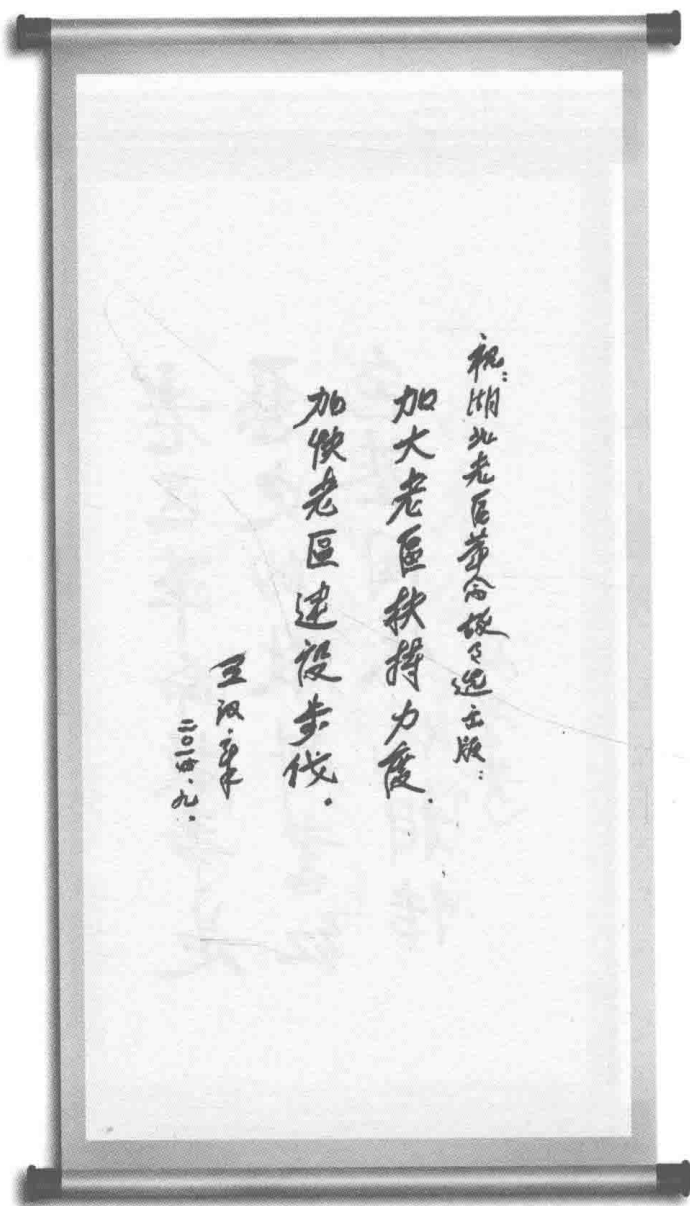 祝:湖北老区革命故事选出版:
加大老區扶持力度.
加快老區建设步伐.
王汉章
二〇一一年、九.